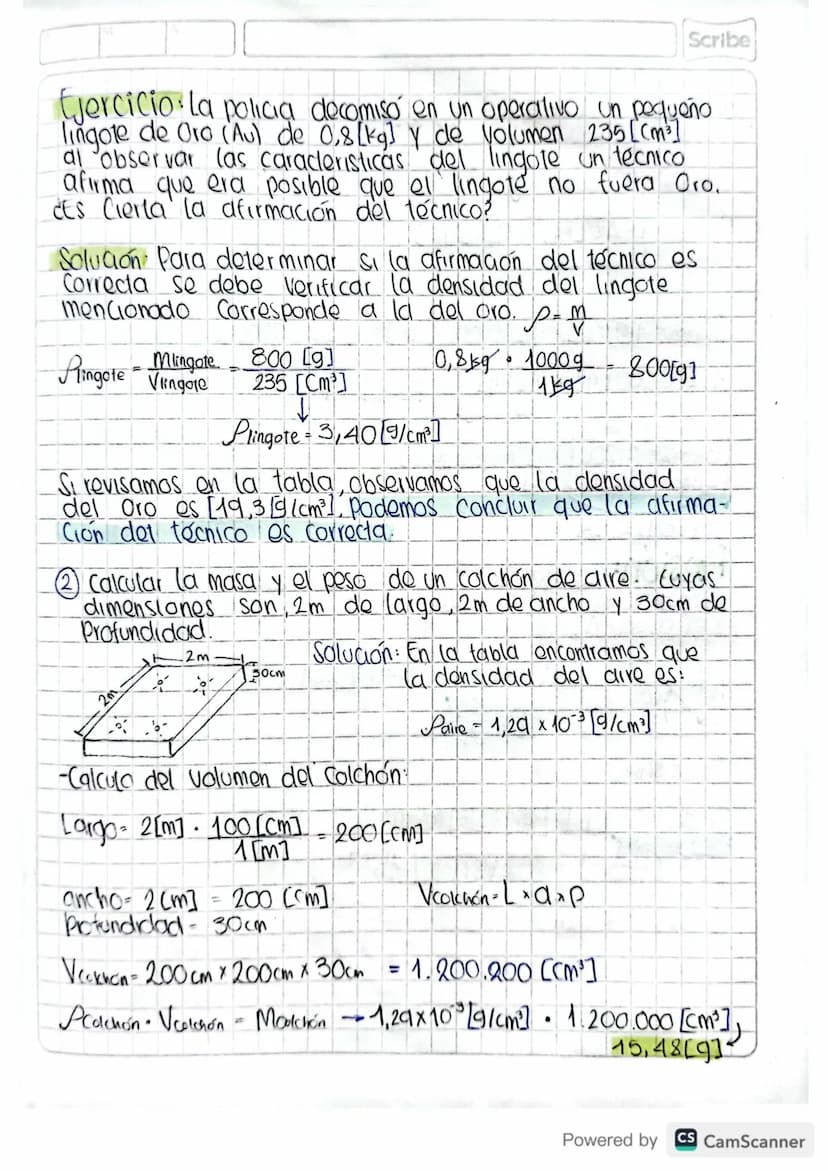 Scribe
Ejercicio: La policia decomisó en un operativo un pequeño
lingote de Oro (Au) de 0,8[kg] y de volumen 235[cm³]
al observar las características del lingote un técnico
afirma que era posible que el lingote no fuera Oro.
¿Es cierta la afirmación del técnico?
Solución: Para determinar si la afirmación del técnico es
correcta se debe verificar la densidad del lingote
mencionado corresponde a la del oro. ρ = m/v
ρlingote = Mlingote/Vlingote = 800 [g]/235 [cm³] 0,8kg · 1000g/1kg = 800[g]
↓
ρlingote = 3,40[g/cm³]
Si revisamos en la tabla, observamos que la densidad
del oro es [19,3[g/cm³]. Podemos concluir que la afirma-
ción del técnico es correcta.
② Calcular la masa y el peso de un colchón de aire. Cuyas
dimensiones son, 2m de largo, 2m de ancho y 30cm de
Profundidad.
2m
30cm
2m
Solución: En la tabla encontramos que
la densidad del aire es:
ρaire = 1,29 x 10⁻³ [g/cm³]
-Calculo del volumen del colchón:
Largo = 2[m] · 100 [cm]/1 [m] = 200[cm]
ancho = 2[m] = 200 [cm] Vcolchón = L x a x p
Profundidad = 30cm
Vcolchón = 200cm x 200cm x 30cm = 1.200.200 [cm³]
ρcolchón · Vcolchón = Mcolchón → 1,29x10⁻³[g/cm³] · 1.200.000 [cm³],
15,48[g]
Powered by CS CamScanner